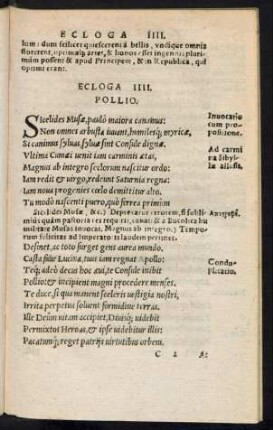 ECLOGA IIII.
lum: dum scilicet quiescerent à bellis, vndique omnia
florerent, optimæq; artes, & honor esset ingeniis: plurimùm
possent & apud Principem, & in Republica, qui
optimi erant.
ECLOGA IIII.
POLLIO.
SIcelides Musæ, paulò maiora canamus:
Non omnes arbusta iuuant, humilesq; myricæ,
Si canimus syluas, syluæ sint Consule dignæ.
Vltima Cumæi venit iam carminis ætas,
Magnus ab integro seclorum nascitur ordo:
Iam redit & virgo, redeunt Saturnia regna:
Iam noua progenies cœlo demittitur alto.
Tu modò nascenti puero, quo ferrea primùm
Sicelides Musæ, &c.) Deprecatur errorem, si sublimiùs
quàm pastoris res requirat, canat: & à Bucolica humilitate
Musas inuocat. Magnus ab integro.) Temporum
felicitas ad Imperatoris laudem pertinet.
Desinet, ac toto surget gens aurea mundo,
Casta faue Lucina, tuus iam regnat Apollo:
Teq; adeò decus hoc æui, te Consule inibit
Pollio: & incipient magni procedere menses.
Te duce, si qua manent sceleris vestigia nostri,
Irrita perpetua soluent formidine terras.
Ille Deûm vitam accipiet, Diuisq; videbit
Permixtos Heroas, & ipse videbitur illis:
Pacatumq; reget patriis virtutibus orbem.
C 2
Inuocatio
cum propositione.
Ad carmina
Sibyllæ